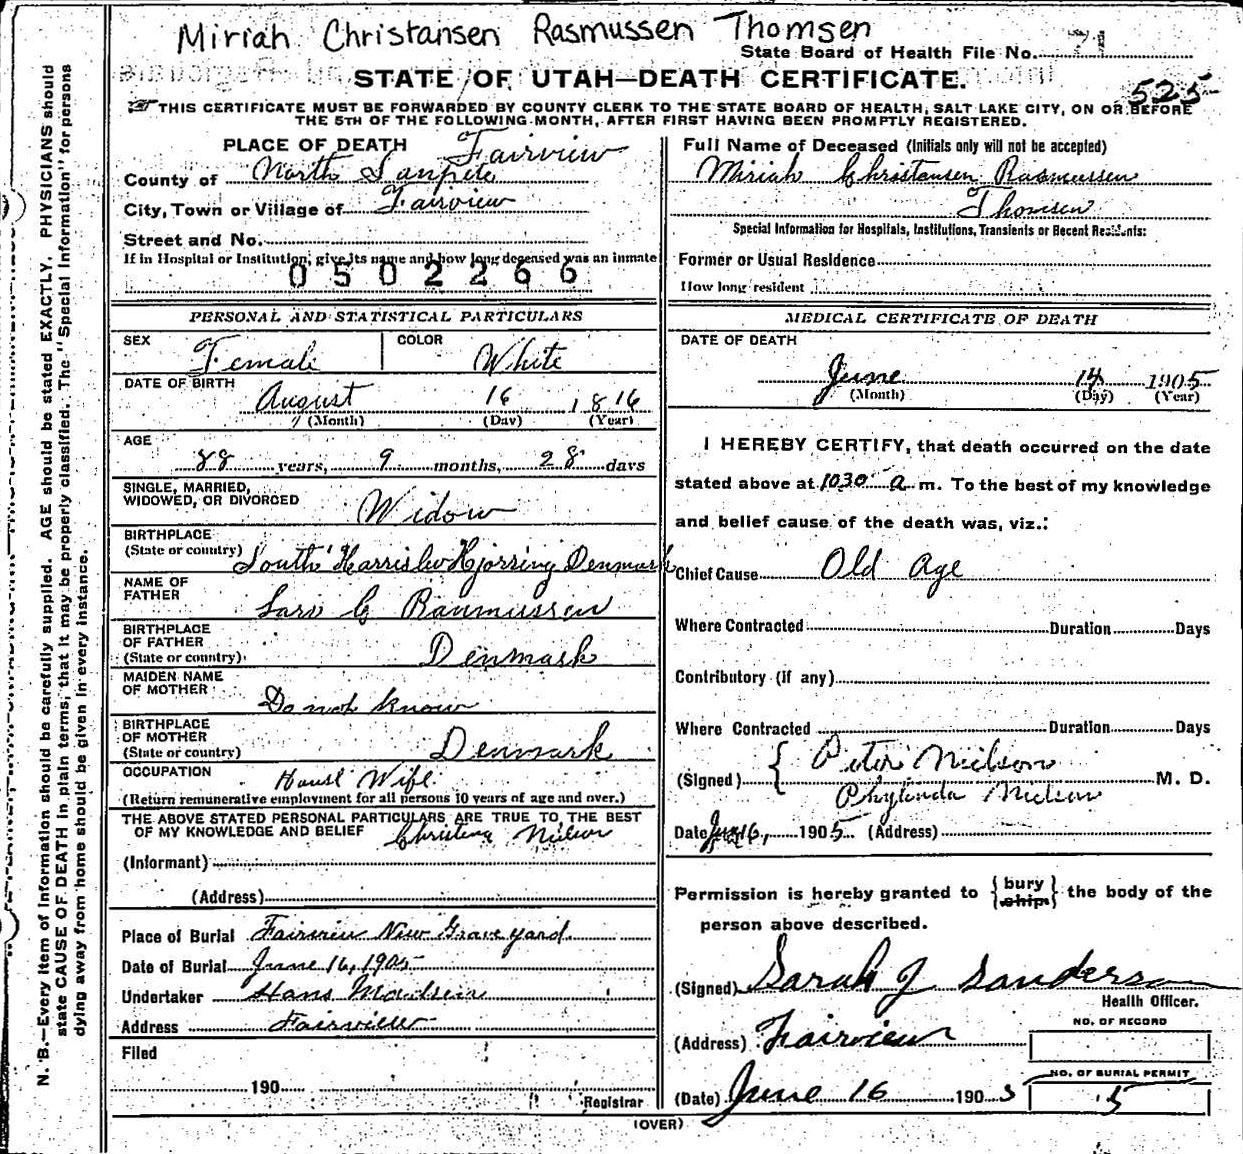 Miriah Christansen Rasmussen Thomsen
State Board of Health File No. 71
STATE OF UTAH—DEATH CERTIFICATE.
525
THIS CERTIFICATE MUST BE FORWARDED BY COUNTY CLERK TO THE STATE BOARD OF HEALTH, SALT LAKE CITY, ON OR BEFORE
THE 5TH OF THE FOLLOWING MONTH, AFTER FIRST HAVING BEEN PROMPTLY REGISTERED.
PLACE OF DEATH Fairview
County of North Sanpete
City, Town or Village of Fairview
Street and No.
If in Hospital or Institution, give its name and how long deceased was an inmate
0502266
PERSONAL AND STATISTICAL PARTICULARS
SEX Female COLOR White
DATE OF BIRTH August 16 1816
(Month) (Day) (Year)
AGE
88 years, 9 months, 28 days
SINGLE, MARRIED,
WIDOWED, OR DIVORCED Widow
BIRTHPLACE
(State or country) South Harrislev Hjorring Denmark
NAME OF
FATHER Lars C Rasmussen
BIRTHPLACE
OF FATHER
(State or country) Denmark
MAIDEN NAME
OF MOTHER Do not know
BIRTHPLACE
OF MOTHER
(State or country) Denmark
OCCUPATION House Wife
(Return remunerative employment for all persons 10 years of age and over.)
THE ABOVE STATED PERSONAL PARTICULARS ARE TRUE TO THE BEST
OF MY KNOWLEDGE AND BELIEF Christena Nilson
(Informant)
(Address)
Place of Burial Fairview New Grave yard
Date of Burial June 16, 1905
Undertaker Hans Madsen
Address Fairview
Filed
190
Registrar
Full Name of Deceased (Initials only will not be accepted)
Miriah Christansen Rasmussen
Thomsen
Special Information for Hospitals, Institutions, Transients or Recent Residents:
Former or Usual Residence
How long resident
MEDICAL CERTIFICATE OF DEATH
DATE OF DEATH
June 14 1905
(Month) (Day) (Year)
I HEREBY CERTIFY, that death occurred on the date
stated above at 1030 a m. To the best of my knowledge
and belief cause of the death was, viz.:
Chief Cause Old Age
Where Contracted Duration Days
Contributory (if any)
Where Contracted Duration Days
Peter Nielson
(Signed) M. D.
Phylinda Nielson
Date June 16, 1905 (Address)
Permission is hereby granted to {bury ship} the body of the
person above described.
(Signed) Sarah J Sanderson
Health Officer.
(Address) Fairview
NO. OF RECORD
NO. OF BURIAL PERMIT
(Date) June 16 1905 5
(OVER)
N. B.—Every item of information should be carefully supplied. AGE should be stated EXACTLY. PHYSICIANS should
state CAUSE OF DEATH in plain terms, that it may be properly classified. The "Special Information" for persons
dying away from home should be given in every instance.